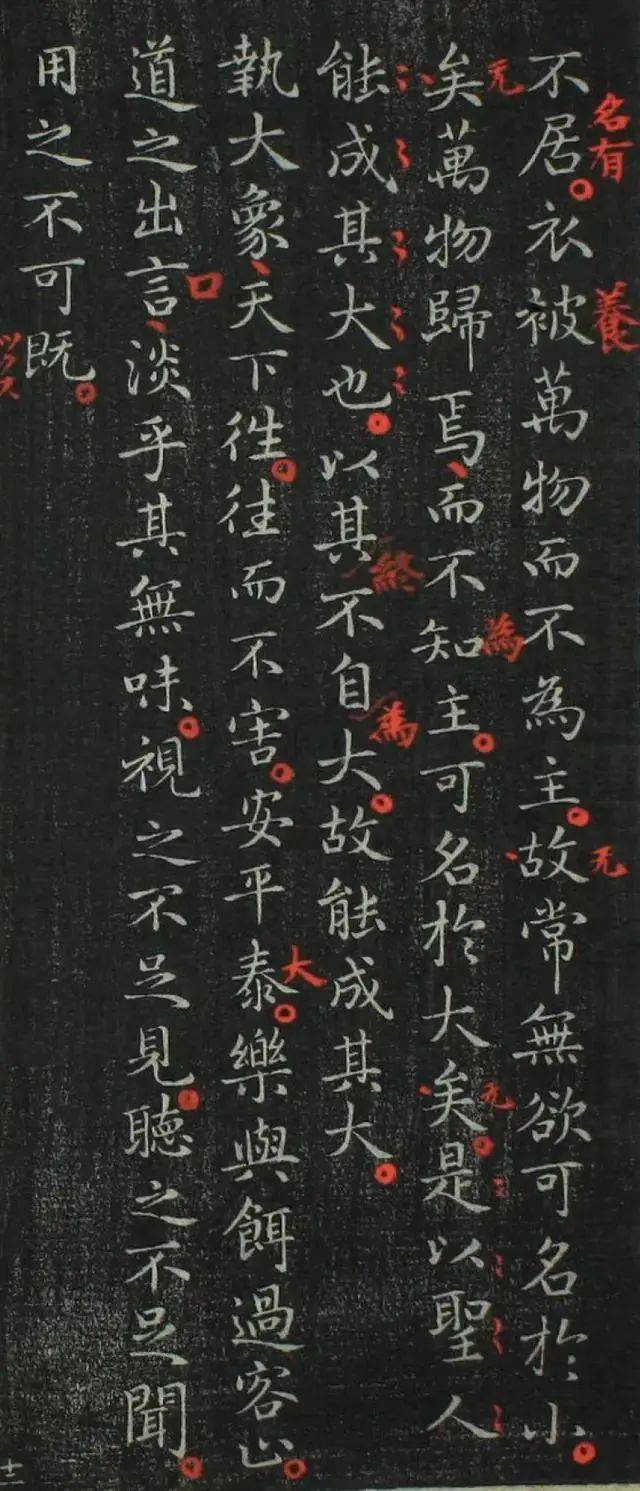 不居衣被萬物而不為主故常無欲可名於小
矣萬物歸焉而不知主可名於大矣是以聖人
能成其大也以其不自大故能成其大
執大象天下往往而不害安平泰樂與餌過客止
道之出言淡乎其無味視之不足見聽之不足聞
用之不可既
名有
養
无
无
為
无
終
為
大
口
十二